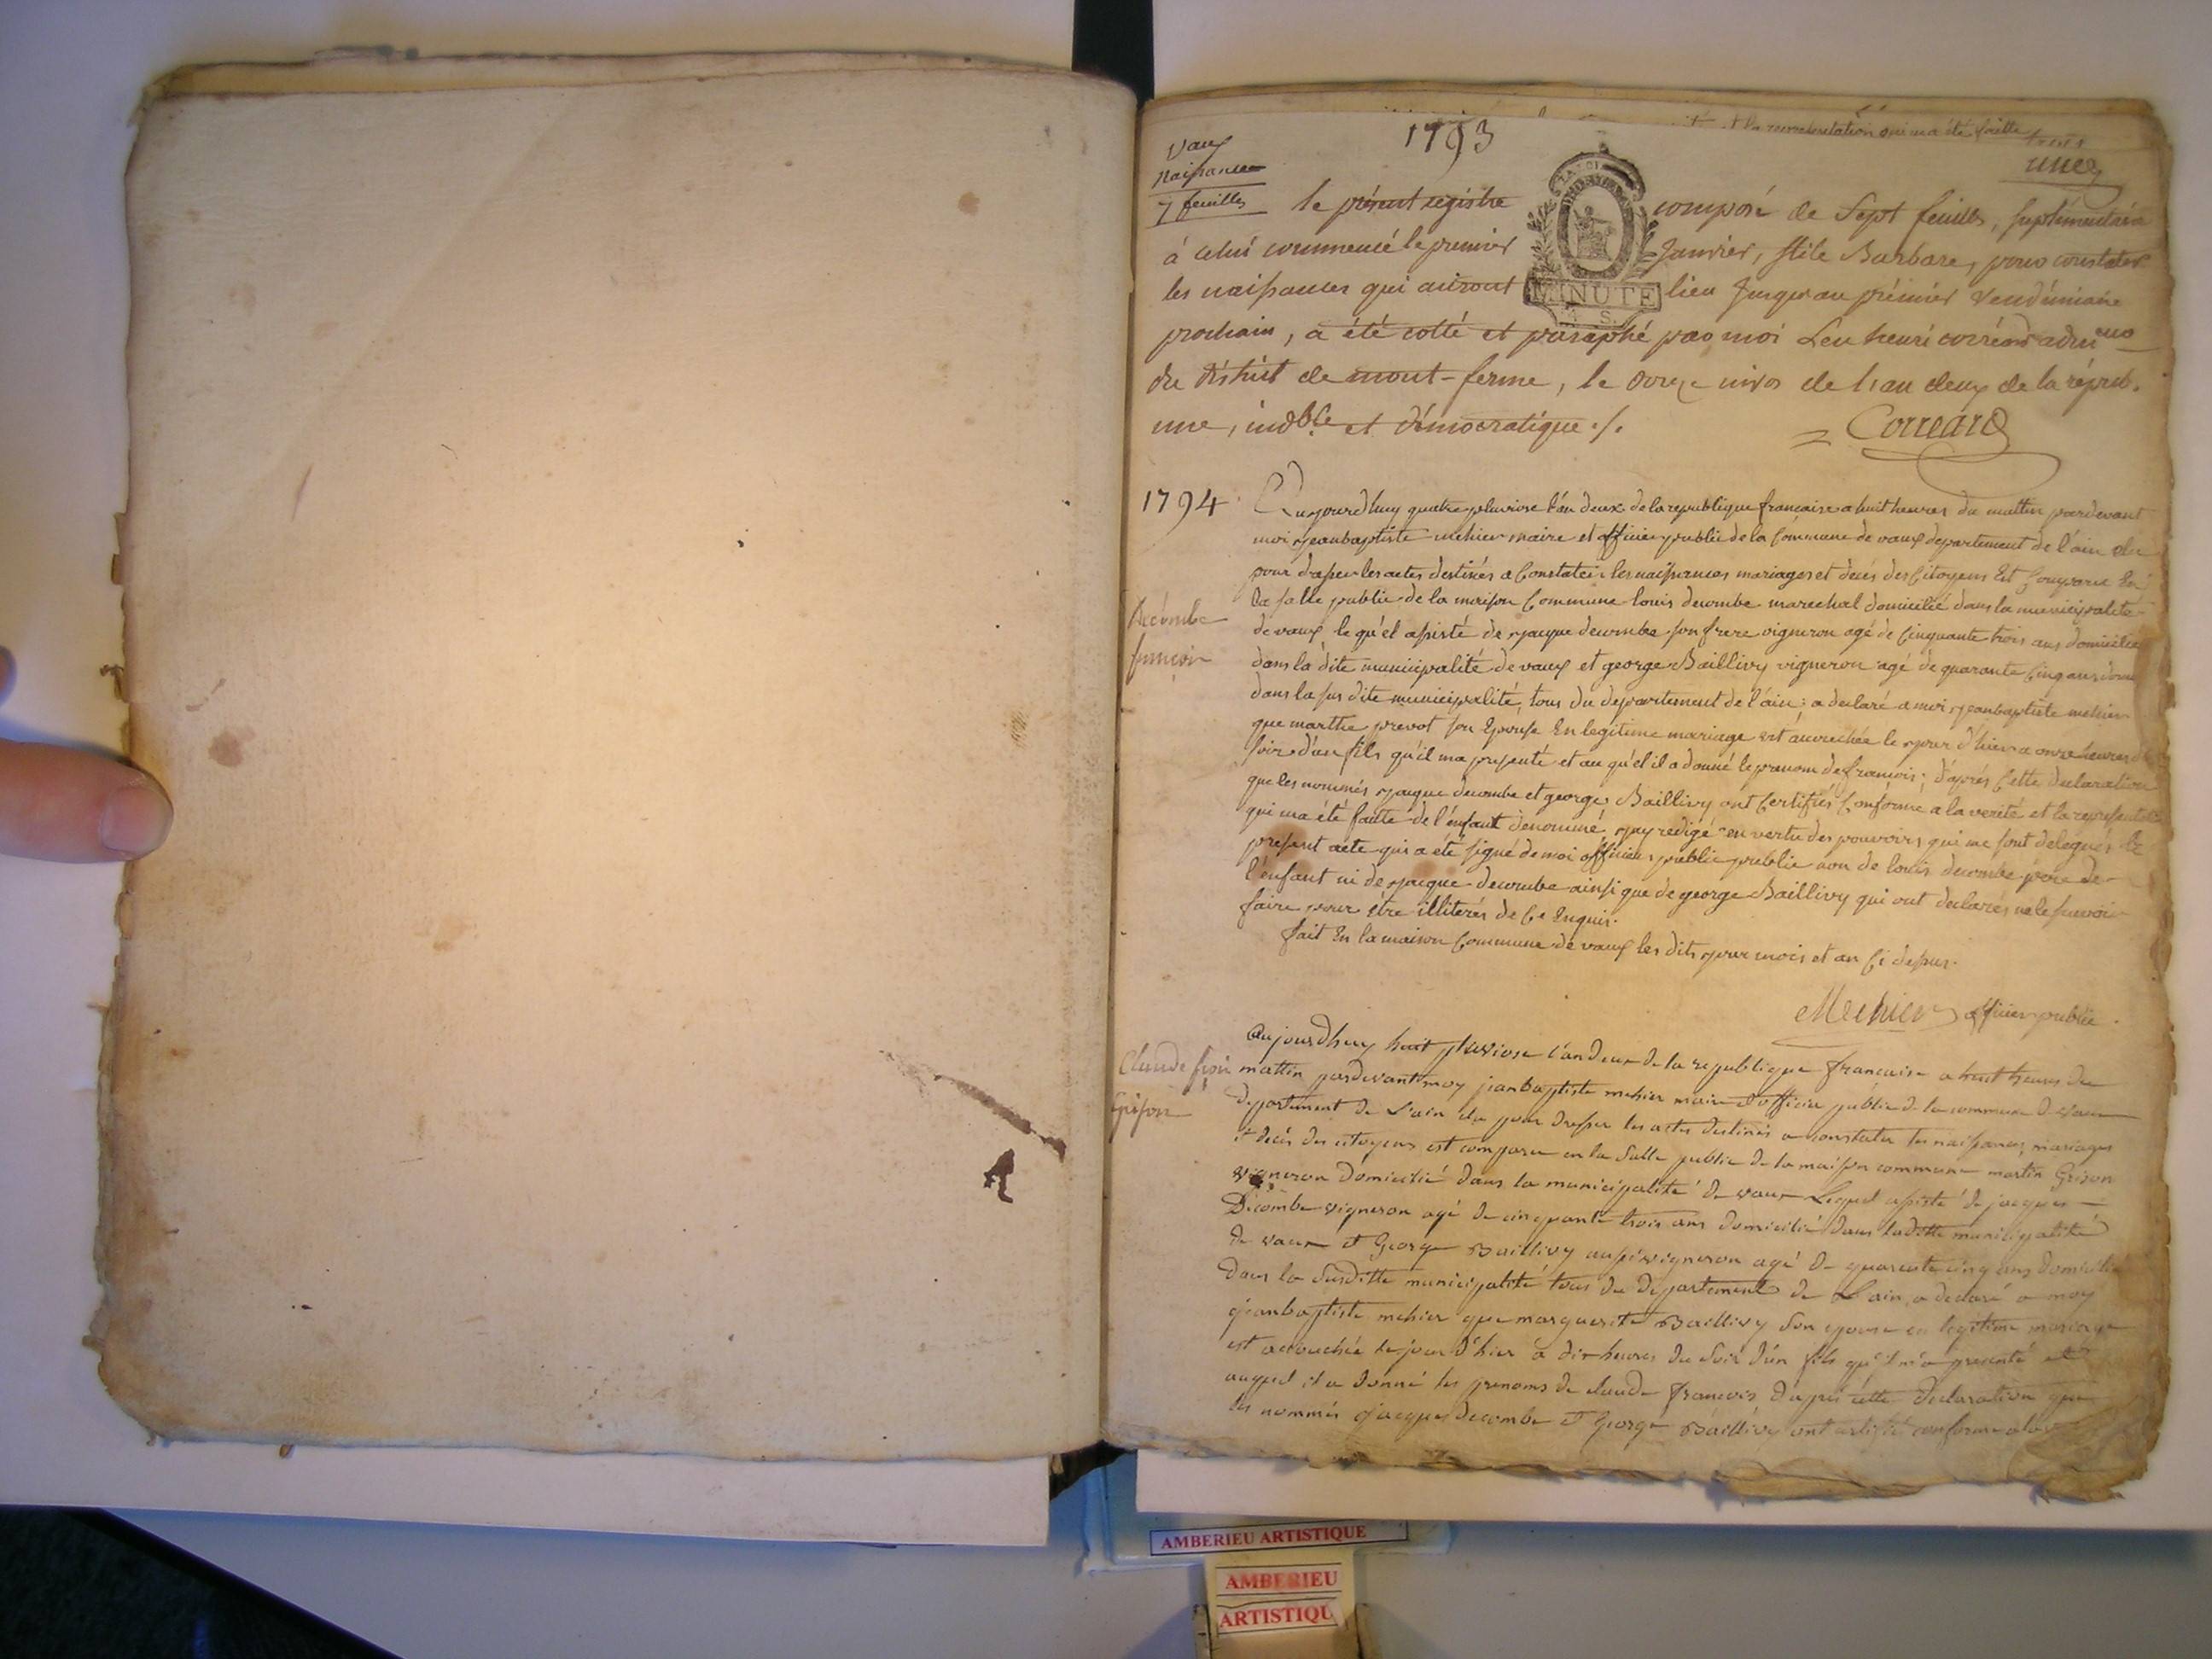 1793
la representation qui ma été faitte
trois
une
Vaux
Naissance
7 feuilles
le présent registre composé de sept feuilles, suplémentaire
à celui commencé le premier Janvier, stile Barbare, pour constater
les naissances qui auront lieu jusqu'au premier vendémiaire
MINUTE
prochain, a été cotté et paraphé par moi Leu henri corréard
du district de mont-ferme, le douze nivos de l'an deux de la répub.
une, indble et démocratique ./.
Corréard
1794
Aujourdhuy quatre pluviose l'an deux de la republique francaise a huit heures du mattin pardevant
moi jeanbaptiste mehier maire et officier public de la commune de vaux departement de l'ain elu
pour dresser les actes destinés a constater les naissances mariages et decés des citoyens est comparu en
la salle public de la maison commune louis decombe marechal domicilié dans la municipalité
Decombe
françois
de vaux le qu'el assisté de jacque decombe son frere vigneron agé de cinquante trois ans domicilié
dans la dite municipalité de vaux et george Baillivy vigneron agé de quarante cinq ans domi
dans la sus dite municipalité, tous du departement de l'ain; a declaré a moi jeanbaptiste mehier
que marthe prevot son epouse en legitime mariage est accouchée le jour d'hier a onze heures du
soir d'un fils qu'il ma presenté et au qu'el il a donné le prenom de francois; d'aprés cette declaration
que les nommés jacque decombe et george Baillivy ont certifiés conforme a la verité et la representation
qui ma été faitte de l'enfant denommé, j'ay redigé en vertu des pouvoirs qui me sont delegués le
present acte qui a été signé de moi officier public public non de louis decombe pere de
l'enfant ni de jacque decombe ainsi que de george Baillivy qui ont declarés ne le savoir
faire pour etre illiterés de ce enquis.
fait en la maison commune de vaux les dits jour mois et an ci dessus.
Mehier officier public.
Aujourdhuy huit pluviose l'an deux de la republique francaise a huit heures du
Claude fçoi
Grison
mattin pardevant moy jeanbaptiste mehier maire et officier public de la commune de vaux
departement de L'ain elu pour dresser les actes destinés a constater les naissances, mariages
et decés des citoyens est comparu en la salle public de la maison commune martin Grison
vigneron domicilié dans la municipalité de vaux Lequel assisté de jacques
Decombe vigneron agé de cinquante trois ans domicilié dans laditte municipalité
de vaux et George Baillivy aussi vigneron agé de quarente cinq ans domicilié
dans la susditte municipalité tous du departement de L'ain, a declaré a moy
jeanbaptiste mehier que marguerite Baillivy son epouse en legitime mariage
est acouchée le jour d'hier à dix heures du soir d'un fils qu'il m'a presenté et
auquel il a donné les prenoms de claude francois, d'apres cette declaration que
les nommés jacques decombe et George Baillivy ont certifié conforme a la
AMBERIEU ARTISTIQUE
AMBERIEU
ARTISTIQU